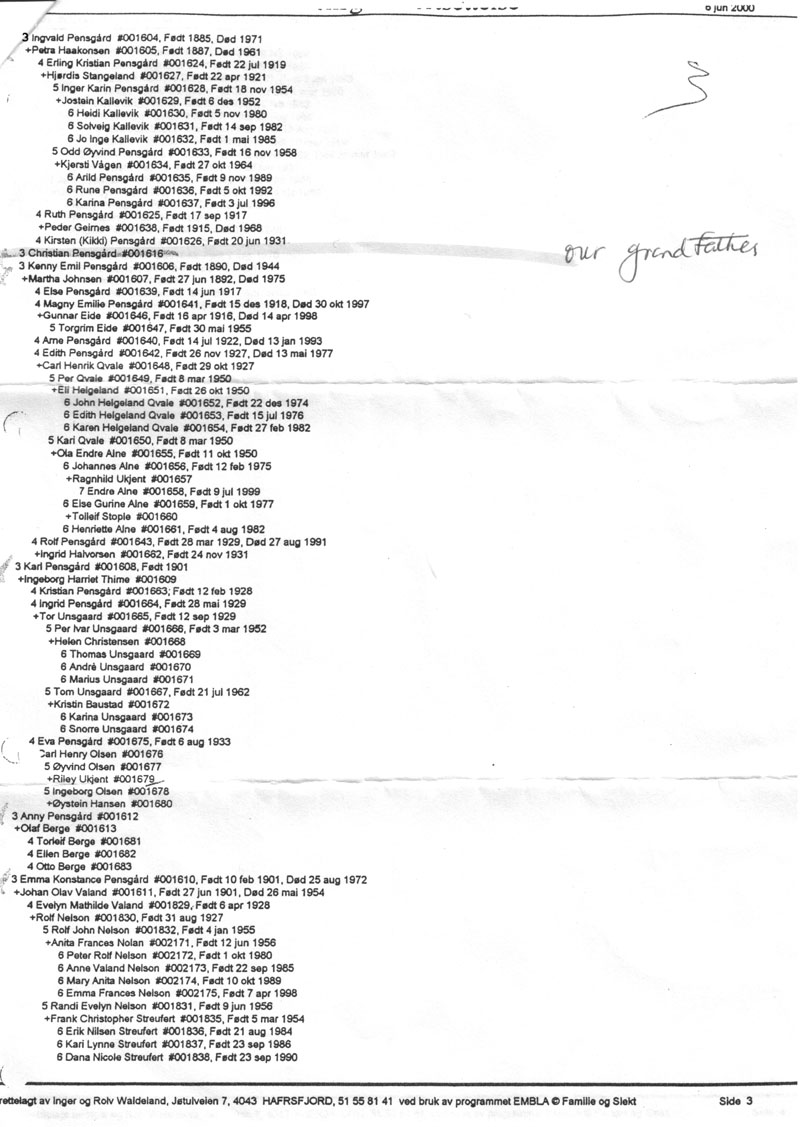 6 jun 2000
3 Ingvald Pensgård #001604, Født 1885, Død 1971
+Petra Haakonsen #001605, Født 1887, Død 1961
4 Erling Kristian Pensgård #001624, Født 22 jul 1919
+Hjørdis Stangeland #001627, Født 22 apr 1921
5 Inger Karin Pensgård #001628, Født 18 nov 1954
+Jostein Kallevik #001629, Født 6 des 1952
6 Heidi Kallevik #001630, Født 5 nov 1980
6 Solveig Kallevik #001631, Født 14 sep 1982
6 Jo Inge Kallevik #001632, Født 1 mai 1985
5 Odd Øyvind Pensgård #001633, Født 16 nov 1958
+Kjersti Vågen #001634, Født 27 okt 1964
6 Arild Pensgård #001635, Født 9 nov 1989
6 Rune Pensgård #001636, Født 5 okt 1992
6 Karina Pensgård #001637, Født 3 jul 1996
4 Ruth Pensgård #001625, Født 17 sep 1917
+Peder Geirnes #001638, Født 1915, Død 1968
4 Kirsten (Kikki) Pensgård #001626, Født 20 jun 1931
3 Christian Pensgård #001616
our grandfather
3 Kenny Emil Pensgård #001606, Født 1890, Død 1944
+Martha Johnsen #001607, Født 27 jun 1892, Død 1975
4 Else Pensgård #001639, Født 14 jun 1917
4 Magny Emilie Pensgård #001641, Født 15 des 1918, Død 30 okt 1997
+Gunnar Eide #001646, Født 16 apr 1916, Død 14 apr 1998
5 Torgrim Eide #001647, Født 30 mai 1955
4 Arne Pensgård #001640, Født 14 jul 1922, Død 13 jan 1993
4 Edith Pensgård #001642, Født 26 nov 1927, Død 13 mai 1977
+Carl Henrik Qvale #001648, Født 29 okt 1927
5 Per Qvale #001649, Født 8 mar 1950
+Eli Helgeland #001651, Født 26 okt 1950
6 John Helgeland Qvale #001652, Født 22 des 1974
6 Edith Helgeland Qvale #001653, Født 15 jul 1976
6 Karen Helgeland Qvale #001654, Født 27 feb 1982
5 Kari Qvale #001650, Født 8 mar 1950
+Ola Endre Alne #001655, Født 11 okt 1950
6 Johannes Alne #001656, Født 12 feb 1975
+Ragnhild Ukjent #001657
7 Endre Alne #001658, Født 9 jul 1999
6 Else Gurine Alne #001659, Født 1 okt 1977
+Tolleif Stople #001660
6 Henriette Alne #001661, Født 4 aug 1982
4 Rolf Pensgård #001643, Født 28 mar 1929, Død 27 aug 1991
+Ingrid Halvorsen #001662, Født 24 nov 1931
3 Karl Pensgård #001608, Født 1901
+Ingeborg Harriet Thime #001609
4 Kristian Pensgård #001663, Født 12 feb 1928
4 Ingrid Pensgård #001664, Født 28 mai 1929
+Tor Unsgaard #001665, Født 12 sep 1929
5 Per Ivar Unsgaard #001666, Født 3 mar 1952
+Helen Christensen #001668
6 Thomas Unsgaard #001669
6 André Unsgaard #001670
6 Marius Unsgaard #001671
5 Tom Unsgaard #001667, Født 21 jul 1962
+Kristin Baustad #001672
6 Karina Unsgaard #001673
6 Snorre Unsgaard #001674
4 Eva Pensgård #001675, Født 6 aug 1933
Carl Henry Olsen #001676
5 Øyvind Olsen #001677
+Riley Ukjent #001679
5 Ingeborg Olsen #001678
+Øystein Hansen #001680
3 Anny Pensgård #001612
+Olaf Berge #001613
4 Torleif Berge #001681
4 Ellen Berge #001682
4 Otto Berge #001683
3 Emma Konstance Pensgård #001610, Født 10 feb 1901, Død 25 aug 1972
+Johan Olav Valand #001611, Født 27 jun 1901, Død 26 mai 1954
4 Evelyn Mathilde Valand #001829, Født 6 apr 1928
+Rolf Nelson #001830, Født 31 aug 1927
5 Rolf John Nelson #001832, Født 4 jan 1955
+Anita Frances Nolan #002171, Født 12 jun 1956
6 Peter Rolf Nelson #002172, Født 1 okt 1980
6 Anne Valand Nelson #002173, Født 22 sep 1985
6 Mary Anita Nelson #002174, Født 10 okt 1989
6 Emma Frances Nelson #002175, Født 7 apr 1998
5 Randi Evelyn Nelson #001831, Født 9 jun 1956
+Frank Christopher Streufert #001835, Født 5 mar 1954
6 Erik Nilsen Streufert #001836, Født 21 aug 1984
6 Kari Lynne Streufert #001837, Født 23 sep 1986
6 Dana Nicole Streufert #001838, Født 23 sep 1990
rettelagt av Inger og Rolv Waldeland, Jøtulveien 7, 4043 HAFRSFJORD, 51 55 81 41 ved bruk av programmet EMBLA © Familie og Slekt Side 3